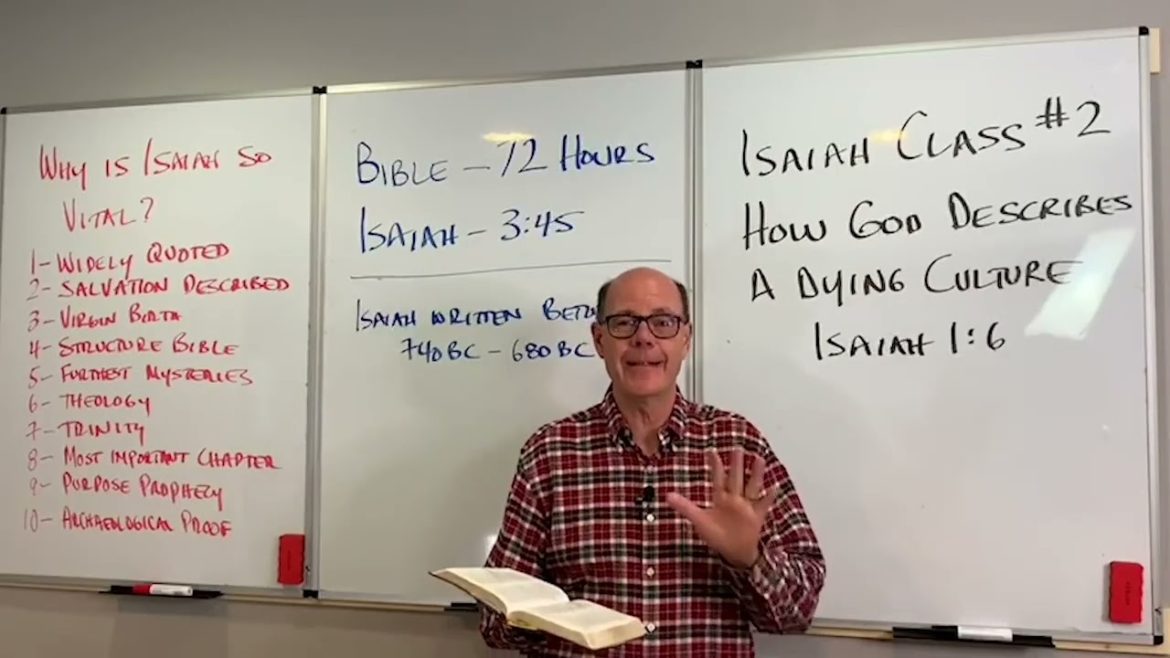 WHY IS ISAIAH SO
VITAL?
1- WIDELY QUOTED
2- SALVATION DESCRIBED
3- VIRGIN BIRTH
4- STRUCTURE BIBLE
5- FURTHEST MYSTERIES
6- THEOLOGY
7- TRINITY
8- MOST IMPORTANT CHAPTER
9- PURPOSE PROPHECY
10- ARCHAEOLOGICAL PROOF
BIBLE - 72 HOURS
ISAIAH - 3:45
ISAIAH WRITTEN
740 BC - 680 BC
ISAIAH CLASS #2
HOW GOD DESCRIBES
A DYING CULTURE
ISAIAH 1:6